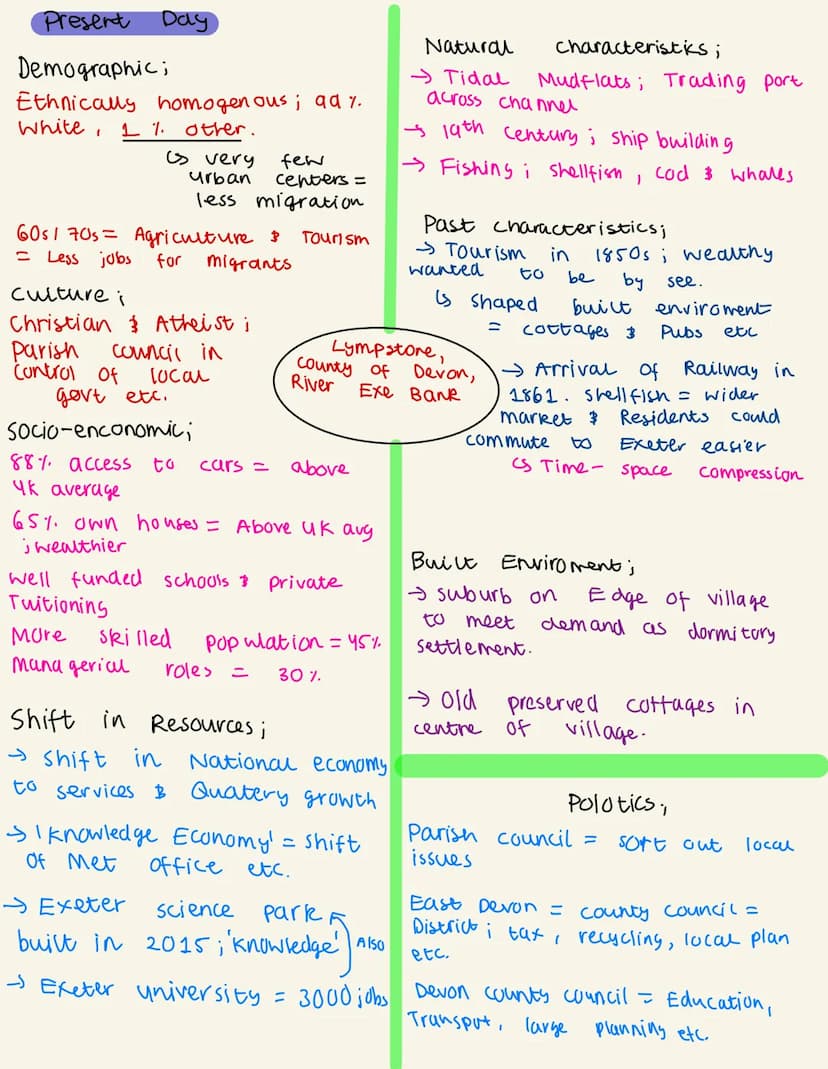 Present Day
Demographic;
Ethnically homogenous; 99%
White, 1 % other.
↳ very few
urban centers =
less migration
60s/70s = Agriculture & Tourism
= Less jobs for migrants
Culture;
Christian & Atheist;
Parish council in
control of local
govt etc.
Socio-enconomic;
88% access to cars = above
UK average
65% own houses = Above UK avg
; wealthier
Well funded schools & private
Tuitioning
More skilled population = 45%
Managerial roles = 30%
Shift in Resources;
→ Shift in National economy
to services & Quatery growth
→ 'Knowledge Economy' = shift
of Met office etc.
→ Exeter science park
built in 2015; 'knowledge' Also
→ Exeter university = 3000 jobs
Lympstone,
County of Devon,
River Exe Bank
Natural characteristics;
→ Tidal Mudflats; Trading port
across channel
→ 19th Century; ship building
→ Fishing; shellfish, cod & whales
Past characteristics;
→ Tourism in 1850s; wealthy
wanted to be by see.
↳ shaped built enviroment
= cottages & Pubs etc
→ Arrival of Railway in
1861. Shellfish = wider
market & Residents could
commute to Exeter easier
↳ Time- space compression
Built Enviroment;
→ suburb on Edge of village
to meet demand as dormitory
settlement.
→ Old preserved cottages in
centre of village.
Polotics;
Parish council = sort out local
issues
East Devon = county council =
District; tax, recycling, local plan
etc.
Devon county council = Education,
Transput, large planning etc.